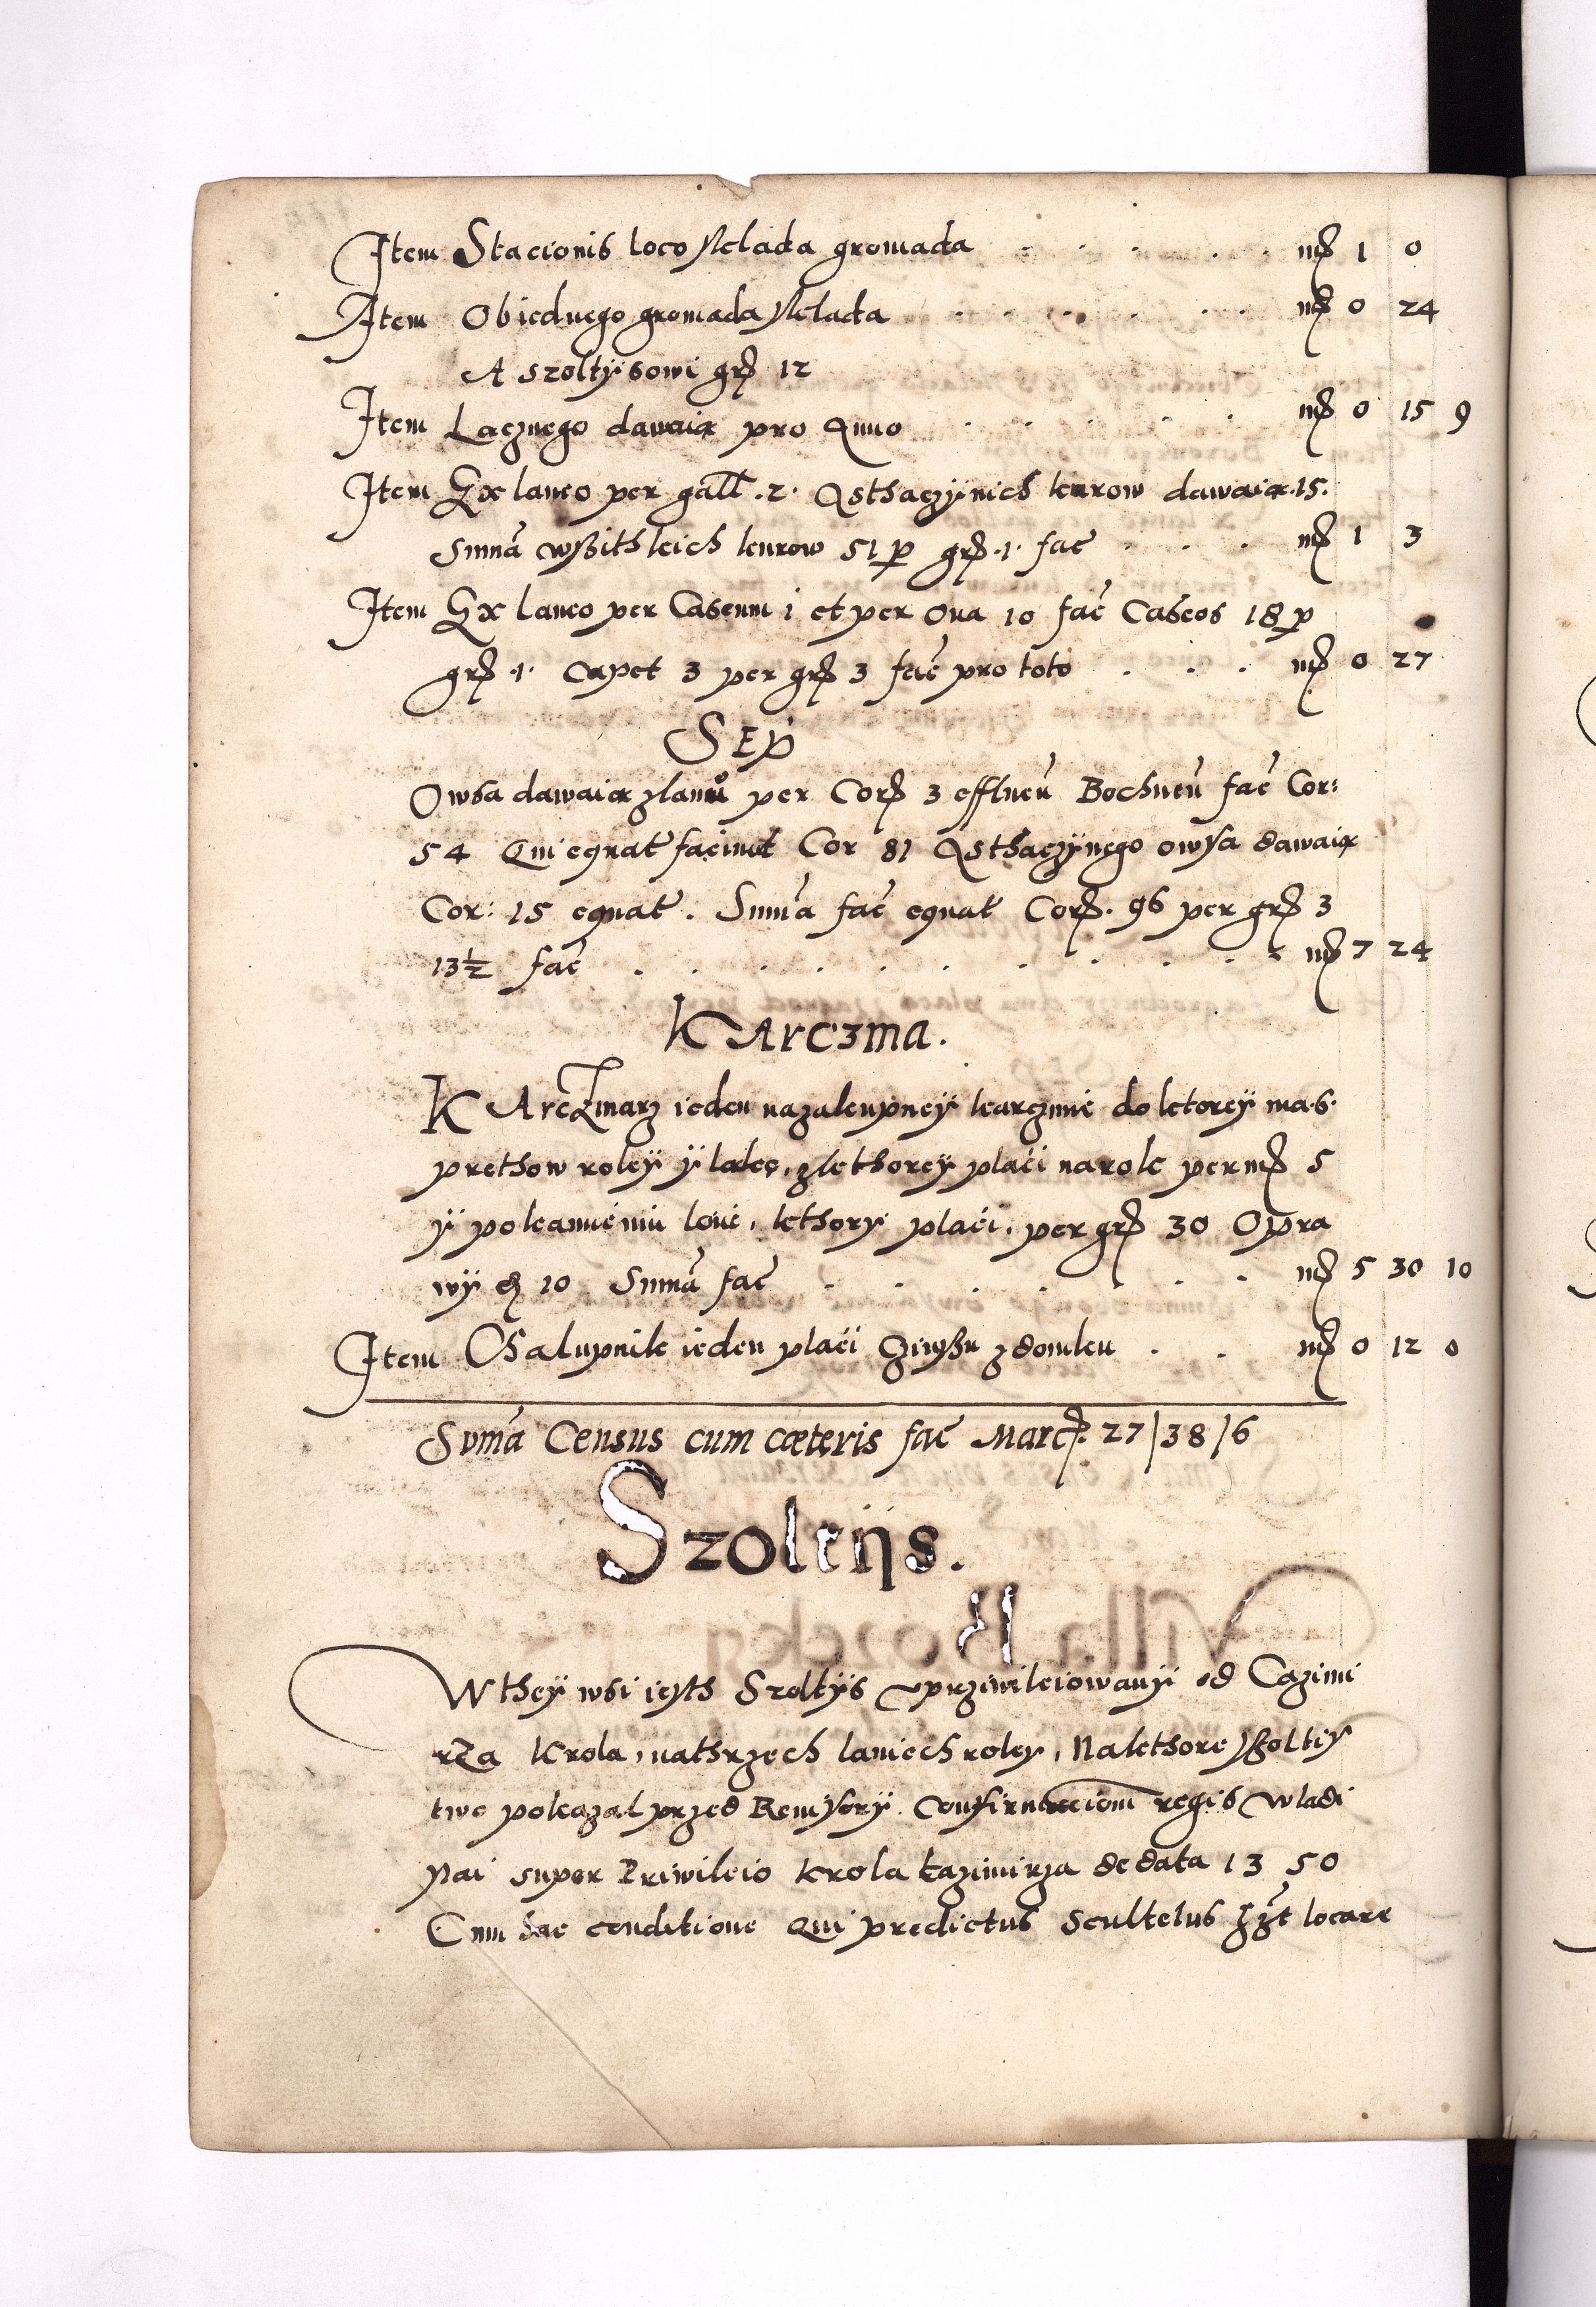 Item Stacionis loco sklada gromada . . . . . mrc 1 0
Item Obiednego gromada sklada . . . . . mrc 0 24
A szoltysowi grs 12
Item Lacznego dawaią pro Anno . . . . . mrc 0 15 9
Item Ex laneo per gall .2. Osthaczÿnich kurow dawaią .15.
Summa wßithkich kurow 51 per grs .1. fac . . . mrc 1 3
Item Ex laneo per Caseum 1 et per Ova 10 fac Caseos 18 per
grs .1. Capet 3 per grs 3 fac pro toto . . . mrc 0 27
SEP
Owsa dawaią zlanu per Cor 3 effluen Bochnen fac Cor:
54 Qui equat faciunt Cor 81 Osthaczÿnego owsa dawaią
Cor: 15 equat. Summa fac equat Cor. 96 per grs 3
13½ fac . . . . . . . . . . mrc 7 24
KArczma.
KArczmarz ieden nazakupneÿ karczmie do ktoreÿ ma .6.
prethow roleÿ ÿ lake, zkthoreÿ placi narok per mrc 5
ÿ po kamieniu loiu, kthorÿ placi, per grs 30 Opra
wÿ 10 Summa fac . . . . . . . mrc 5 30 10
Item Chalupnik ieden placi Czinßu z domku . . mrc 0 12 0
Summa Census cum cæteris fac Marc. 27/38/6
Szoltÿs.
W theÿ wsi iesth Szoltÿs uprziwileiowanÿ od Cazimi
rza Krola, nathrzech laniech roley, Nakthore ßoltiÿ
two pokazal przed Rewisorÿ. Confirmacionem regis Wladi
slai super Priwileio Krola Kazimirza de data 1350
Cum hac conditione Qui predictus Scultetus locare